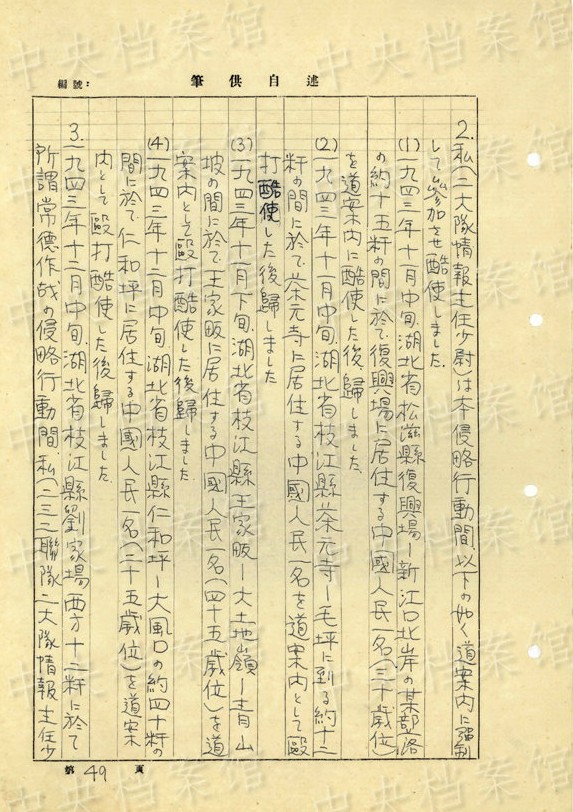 中央档案馆
編號：
筆供自述
2. 私(二大隊情報主任少尉)は本侵略行動間、以下の如く道案内に強制
して参加させ酷使しました．
(1) 一九四三年十一月中旬、湖北省松滋縣復興場－新江口北岸の某部落
の約十五粁の間に於て復興場に居住する中國人民一名(三十歳位)
を道案内に酷使した後、歸しました
(2) 一九四三年十一月中旬、湖北省枝江縣茶元寺－毛坪に到る約十二
粁の間に於て、茶元寺に居住する中國人民一名を道案内として毆
打酷使した後歸しました
(3) 一九四三年十一月下旬、湖北省枝江縣王家畈－大土地嶺－青山
坡の間に於て王家畈に居住する中國人民一名(四十五歳位)を道
案内として毆打酷使した後歸しました
(4) 一九四三年十二月中旬、湖北省枝江縣仁和坪－大風口の約四十粁の
間に於て仁和坪に居住する中國人民一名(二十五歳位)を道案
内として毆打酷使した後、歸しました
3. 一九四三年十二月中旬、湖北省枝江縣劉家場西方十二粁に於て
所謂常德作战の侵略行動間、私(二三二聯隊二大隊情報主任少
第 49 頁